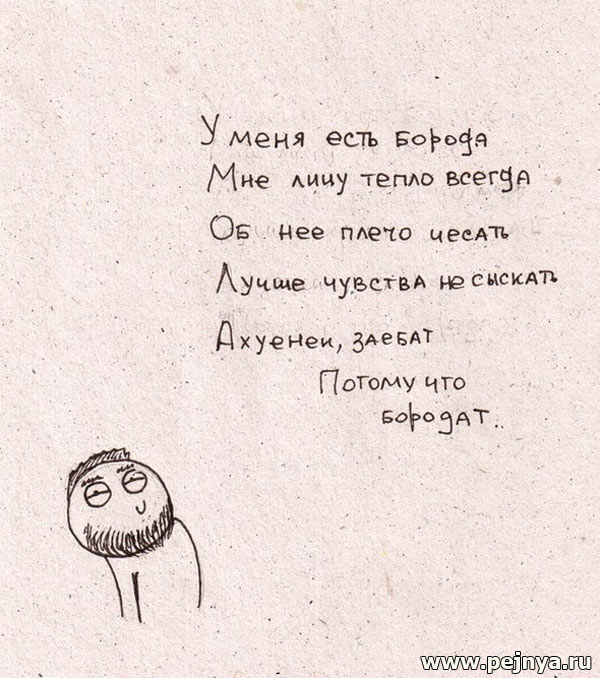 У меня есть борода
Мне лицу тепло всегда
Об нее плечо чесать
Лучше чувства не сыскать
Ахуенен, заебат
Потому что
бородат..
www.pejnya.ru